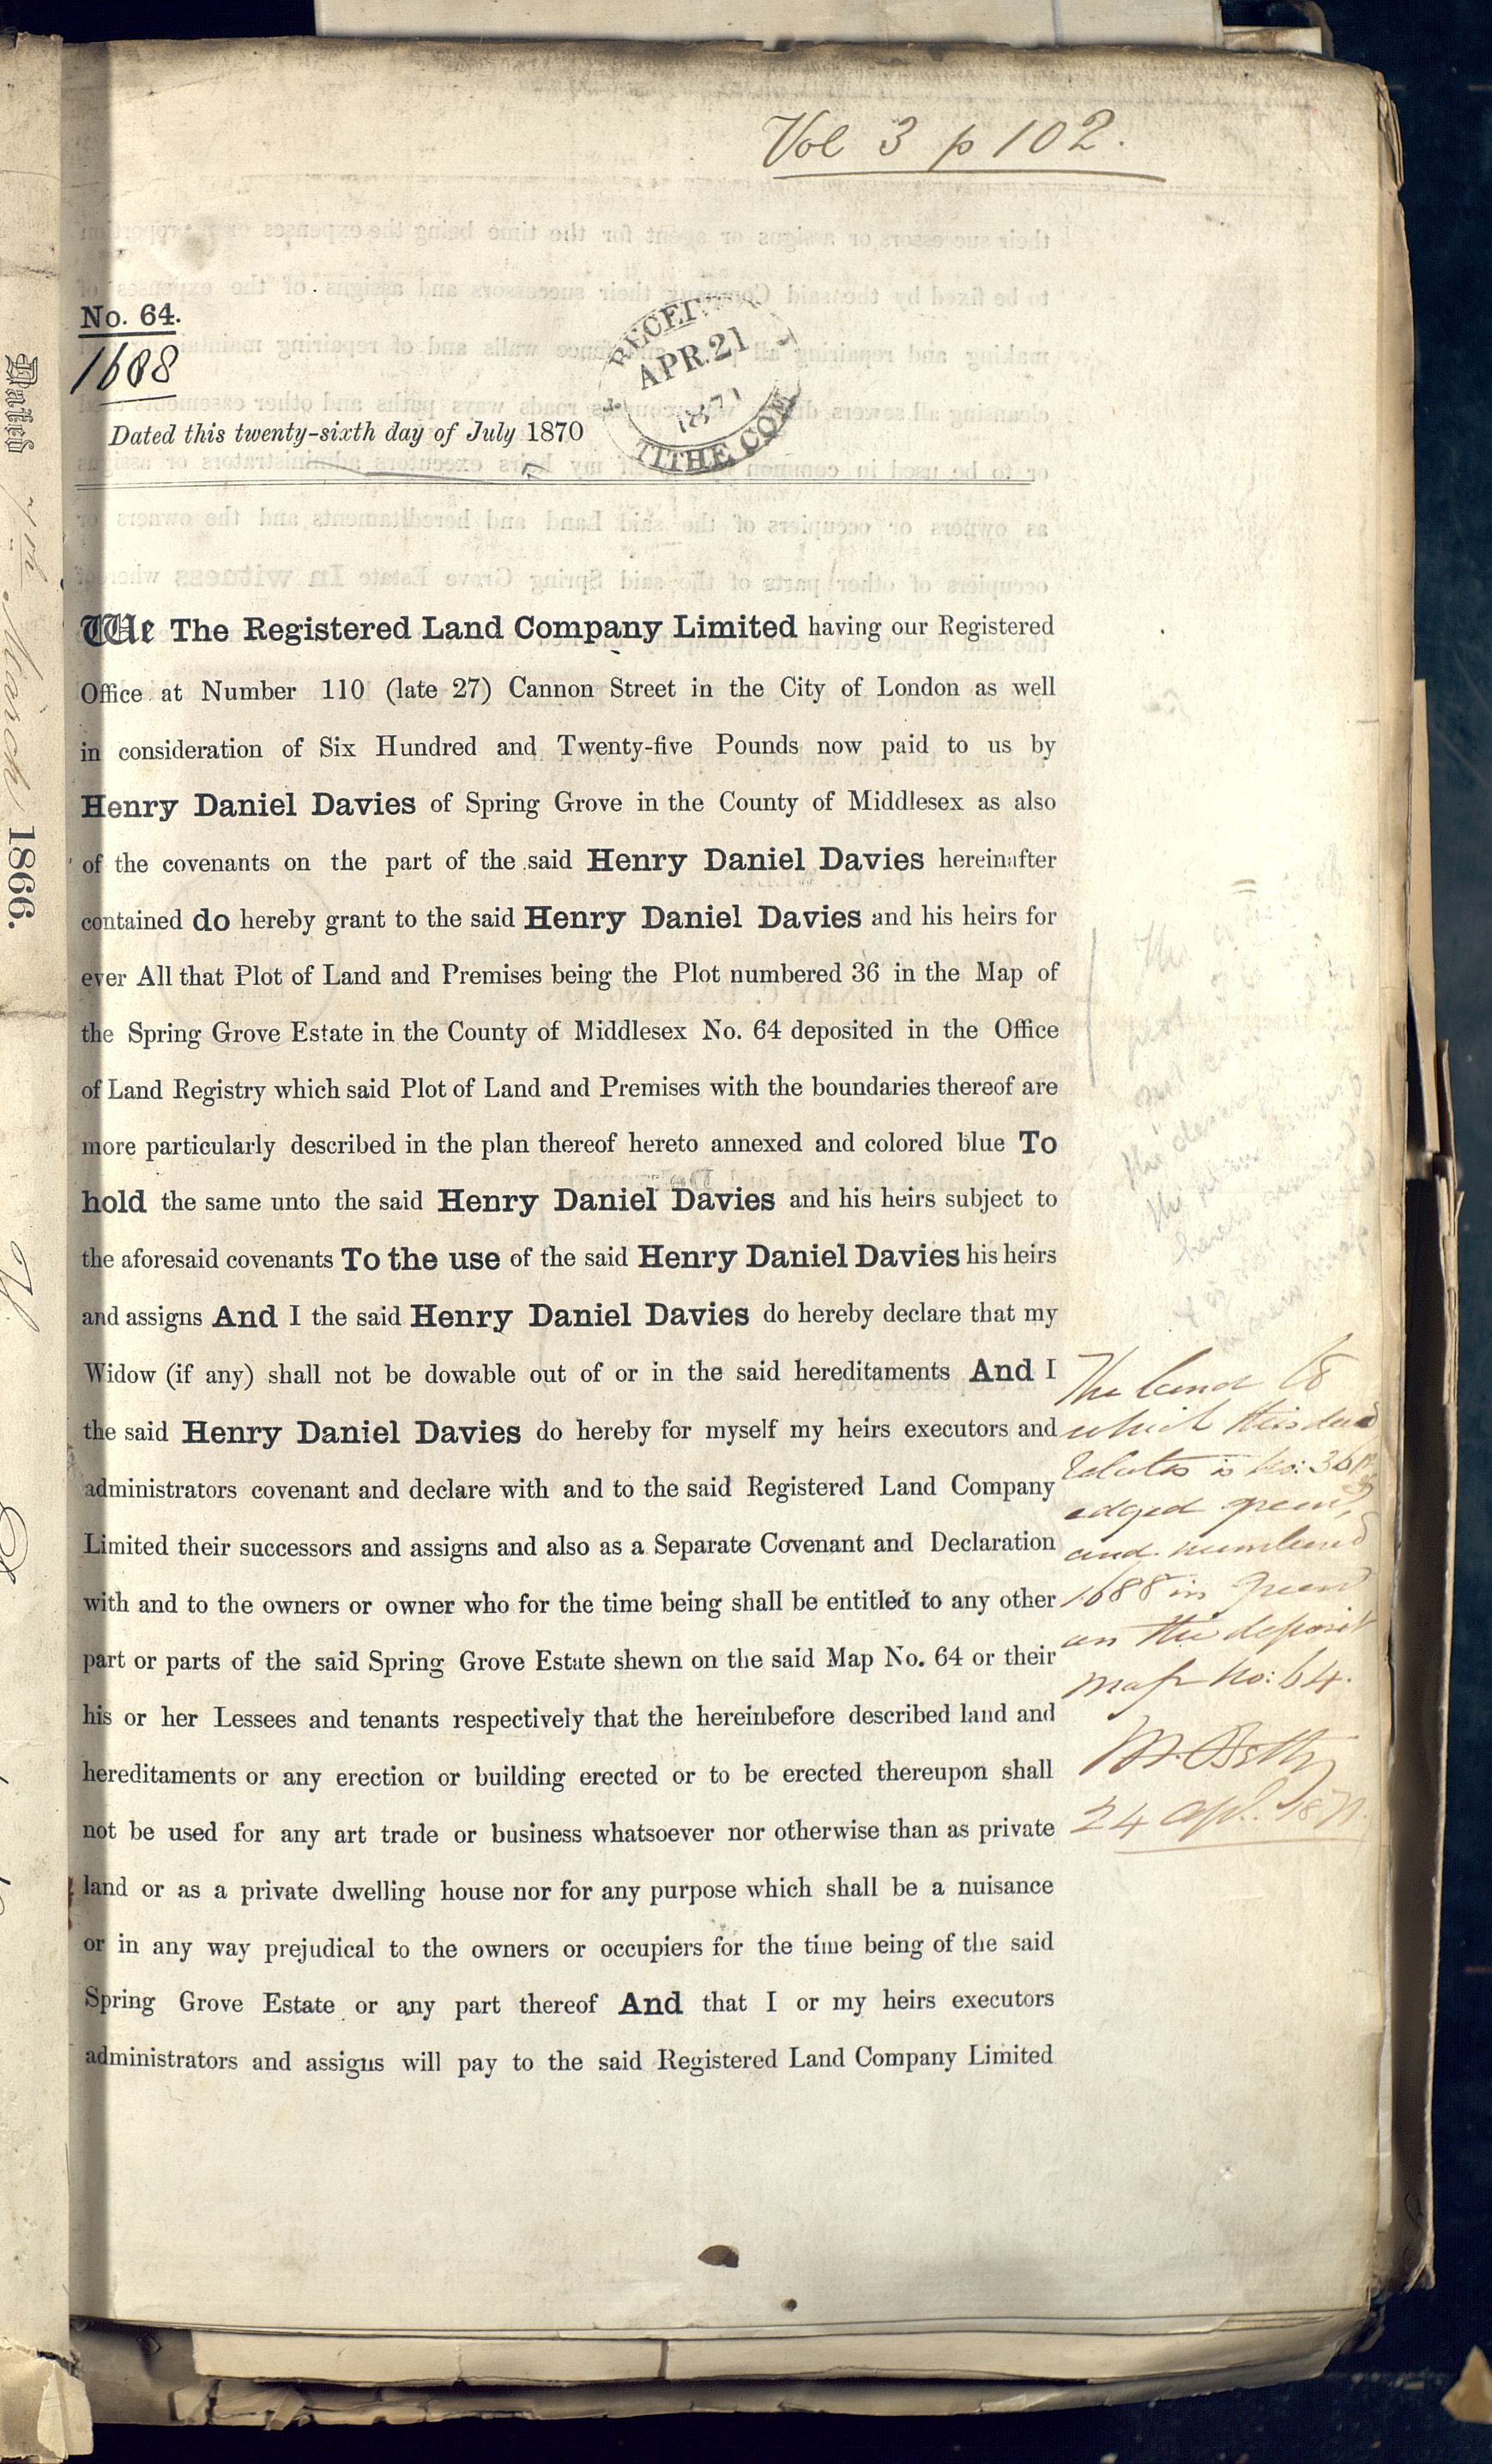 Vol 3 p 102.
No. 64.
1688
RECEI
APR. 21
1871
TITHE COM
Dated this twenty-sixth day of July 1870
We The Registered Land Company Limited having our Registered
Office at Number 110 (late 27) Cannon Street in the City of London as well
in consideration of Six Hundred and Twenty-five Pounds now paid to us by
Henry Daniel Davies of Spring Grove in the County of Middlesex as also
of the covenants on the part of the said Henry Daniel Davies hereinafter
contained do hereby grant to the said Henry Daniel Davies and his heirs for
ever All that Plot of Land and Premises being the Plot numbered 36 in the Map of
the Spring Grove Estate in the County of Middlesex No. 64 deposited in the Office
of Land Registry which said Plot of Land and Premises with the boundaries thereof are
more particularly described in the plan thereof hereto annexed and colored blue To
hold the same unto the said Henry Daniel Davies and his heirs subject to
the aforesaid covenants To the use of the said Henry Daniel Davies his heirs
and assigns And I the said Henry Daniel Davies do hereby declare that my
Widow (if any) shall not be dowable out of or in the said hereditaments And I
the said Henry Daniel Davies do hereby for myself my heirs executors and
administrators covenant and declare with and to the said Registered Land Company
Limited their successors and assigns and also as a Separate Covenant and Declaration
with and to the owners or owner who for the time being shall be entitled to any other
part or parts of the said Spring Grove Estate shewn on the said Map No. 64 or their
his or her Lessees and tenants respectively that the hereinbefore described land and
hereditaments or any erection or building erected or to be erected thereupon shall
not be used for any art trade or business whatsoever nor otherwise than as private
land or as a private dwelling house nor for any purpose which shall be a nuisance
or in any way prejudical to the owners or occupiers for the time being of the said
Spring Grove Estate or any part thereof And that I or my heirs executors
administrators and assigns will pay to the said Registered Land Company Limited
The land to
which this deed
relates is No: 36
edged green,
and numbered
1688 in green
on the deposit
map No: 64.
24 Apl. 1871.
Dated
March 1866.